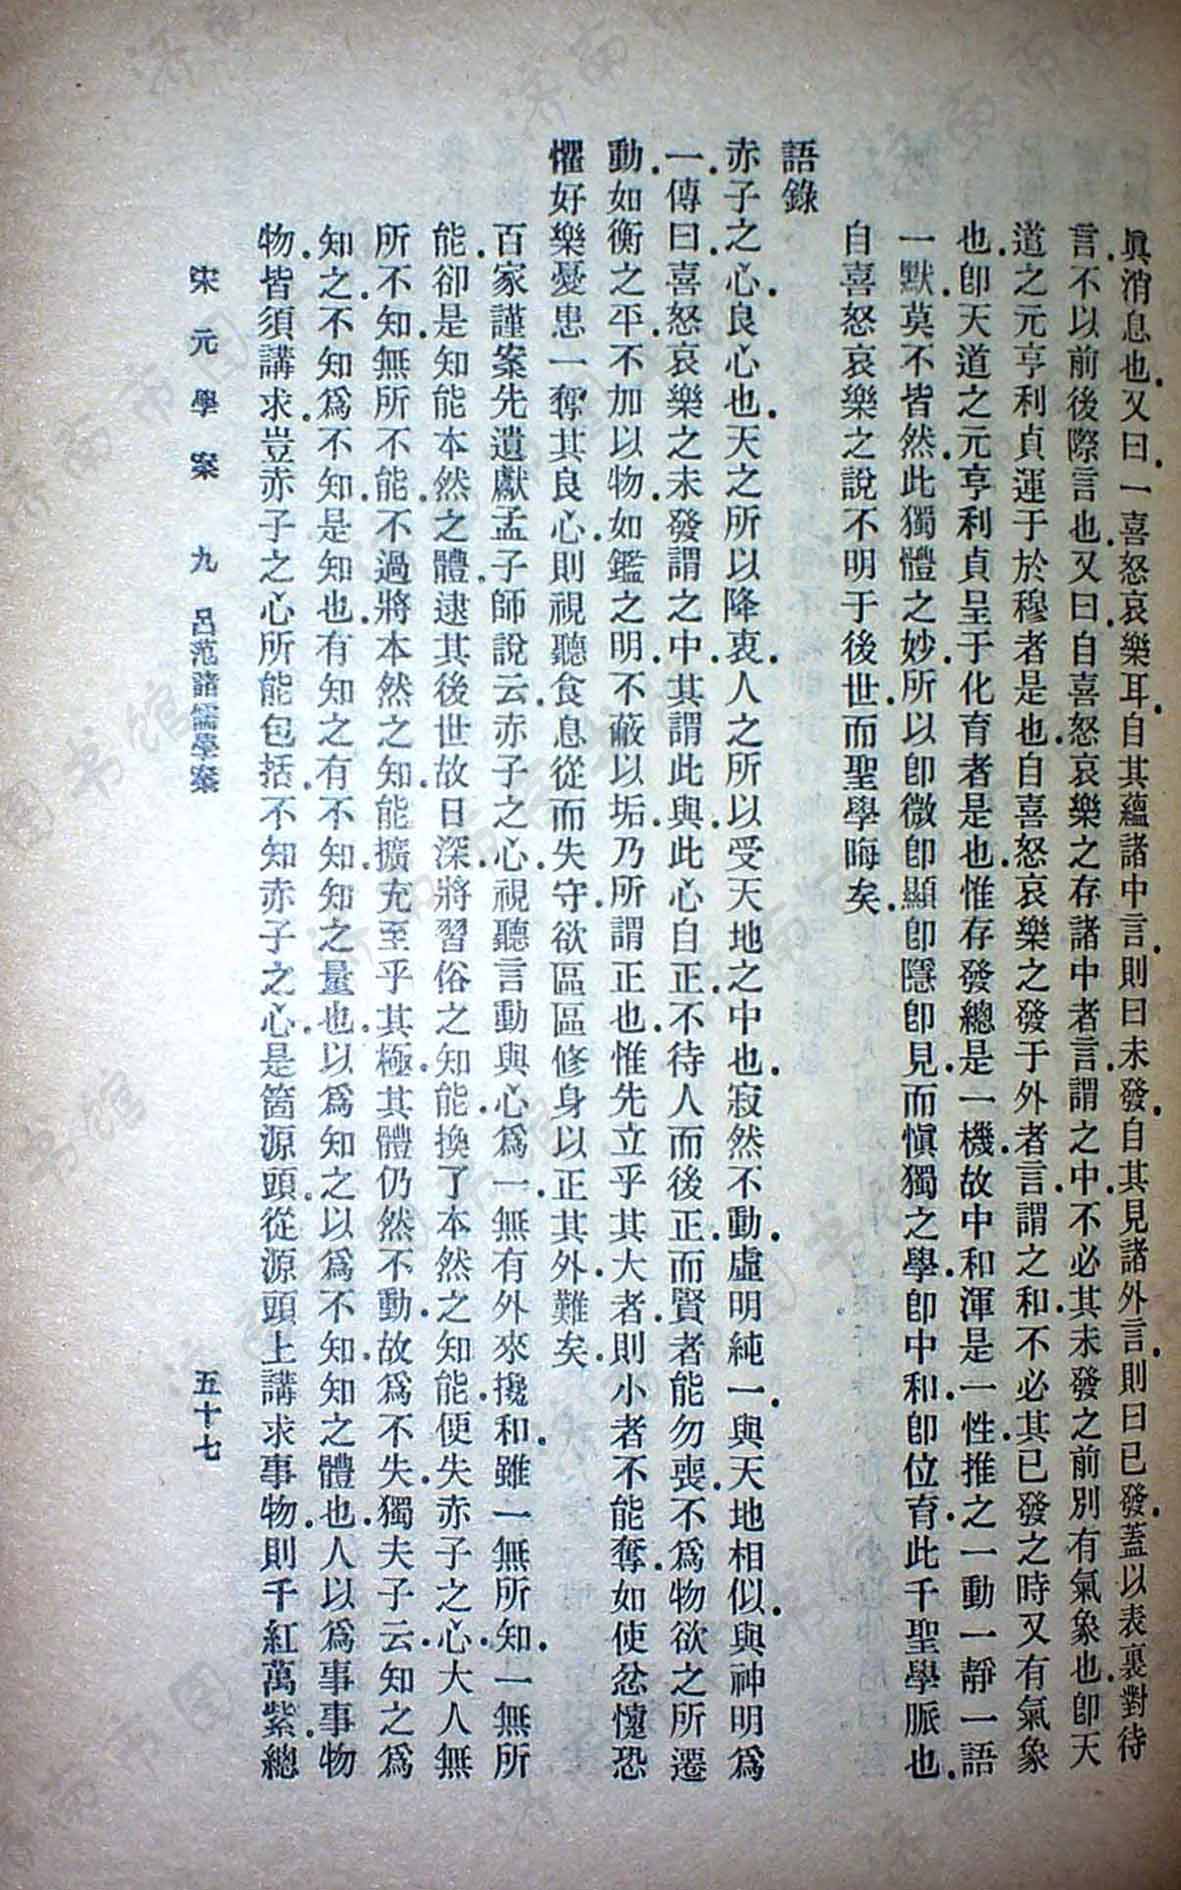 眞消息也又曰一喜怒哀樂耳自其蘊諸中言則曰未發自其見諸外言則曰已發蓋以表裏對待
言不以前後際言也又曰自喜怒哀樂之存諸中者言謂之中不必其未發之前別有氣象也卽天
道之元亨利貞運于於穆者是也自喜怒哀樂之發于外者言謂之和不必其已發之時又有氣象
也卽天道之元亨利貞呈于化育者是也惟存發總是一機故中和渾是一性推之一動一靜一語
一默莫不皆然此獨體之妙所以卽微卽顯卽隱卽見而愼獨之學卽中和卽位育此千聖學脈也
自喜怒哀樂之說不明于後世而聖學晦矣
語錄
赤子之心良心也天之所以降衷人之所以受天地之中也寂然不動虛明純一與天地相似與神明爲
一傳曰喜怒哀樂之未發謂之中其謂此與此心自正不待人而後正而賢者能勿喪不爲物欲之所遷
動如衡之平不加以物如鑑之明不蔽以垢乃所謂正也惟先立乎其大者則小者不能奪如使忿懥恐
懼好樂憂患一奪其良心則視聽食息從而失守欲區區修身以正其外難矣
百家謹案先遺獻孟子師說云赤子之心視聽言動與心爲一無有外來攙和雖一無所知一無所
能卻是知能本然之體逮其後世故日深將習俗之知能換了本然之知能便失赤子之心大人無
所不知無所不能不過將本然之知能擴充至乎其極其體仍然不動故爲不失獨夫子云知之爲
知之不知爲不知是知也有知之有不知知之量也以爲知之以爲不知知之體也人以爲事事物
物皆須講求豈赤子之心所能包括不知赤子之心是箇源頭從源頭上講求事物則千紅萬紫總
宋元學案 九 呂范諸儒學案 五十七